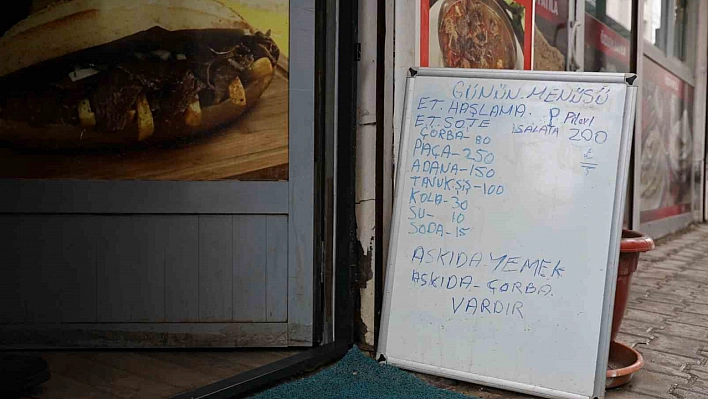 GÜNÜN MENÜSÜ
ET. HAŞLAMA. P. Pilavı
ET. SOTE SALATA 200
ÇORBA-80 ₺
PAÇA-250
ADANA-150
TAVUK ŞİŞ-100
KOLA-30
SU- 10
SODA-15
ASKIDA-YEMEK
ASKIDA-ÇORBA.
VARDIR